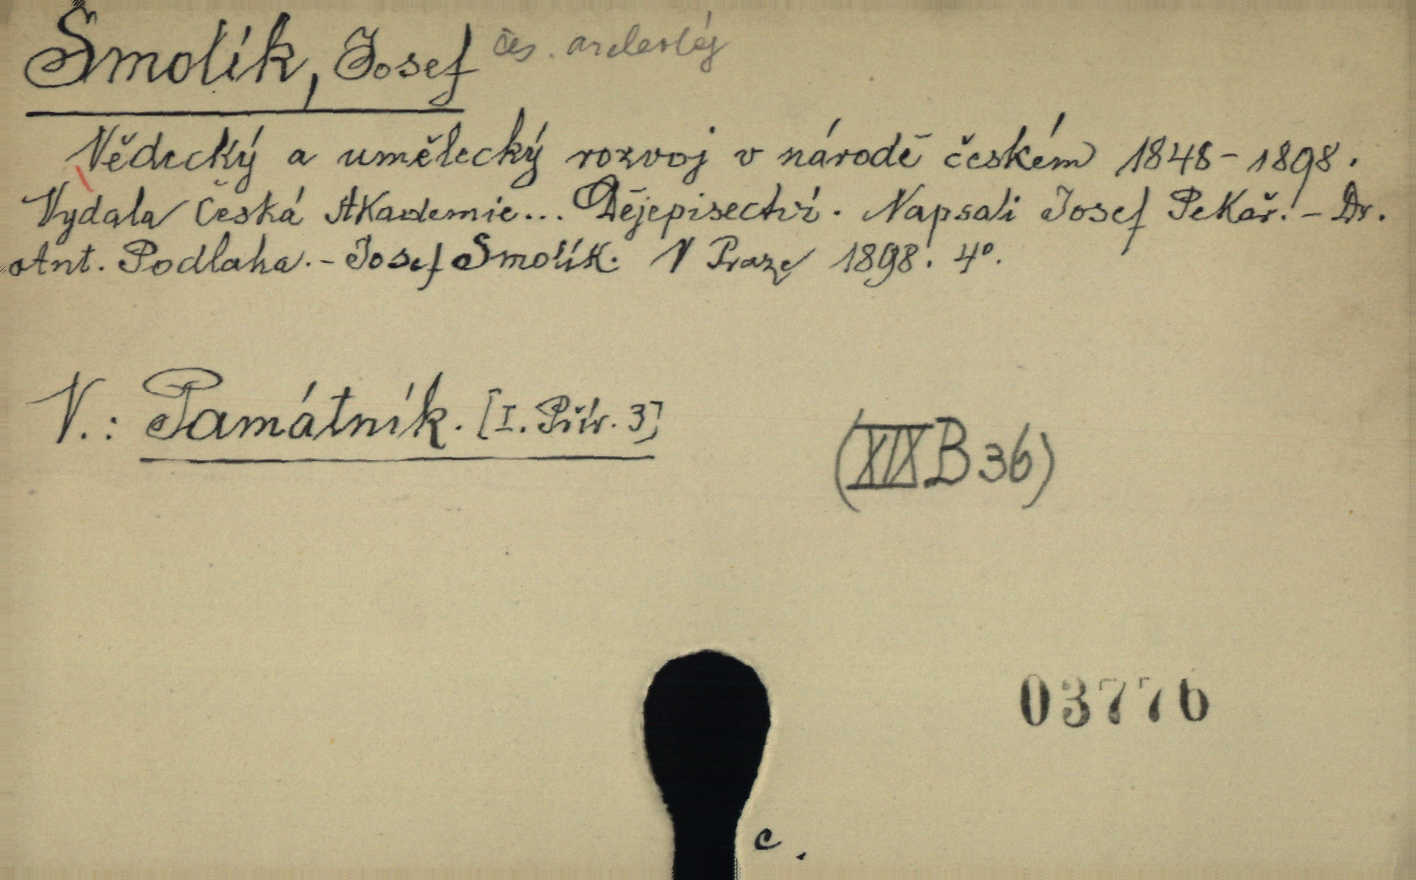 Smolík, Josef čes. archeolog
Vědecký a umělecký rozvoj v národě českém 1848-1898.
Vydala Česká Akademie... Dějepisectví. Napsali Josef Pekař. - Dr.
Ant. Podlaha. - Josef Smolík. V Praze 1898. 4º.
V.: Památník. [I. Přír. 3]
(XIX B 36)
03776
c.